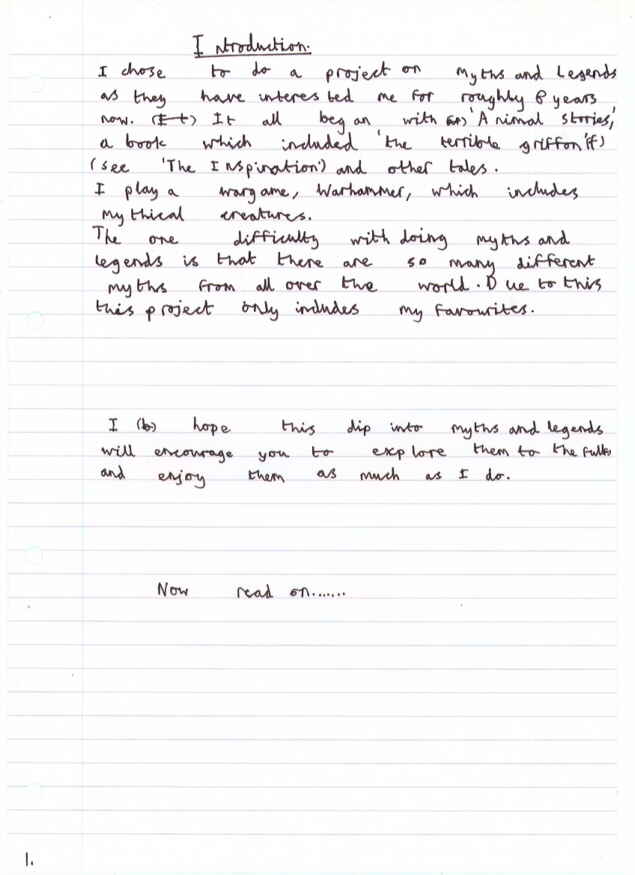 Introduction.
I chose to do a project on myths and legends
as they have interested me for roughly 8 years
now. (It) It all began with 'Animal stories,'
a book which included 'the terrible griffon'(f)
(see 'The Inspiration') and other tales.
I play a wargame, Warhammer, which includes
mythical creatures.
The one difficulty with doing myths and
legends is that there are so many different
myths from all over the world. Due to this
this project only includes my favourites.
I (b) hope this dip into myths and legends
will encourage you to explore them to the full
and enjoy them as much as I do.
Now read on.......
1.